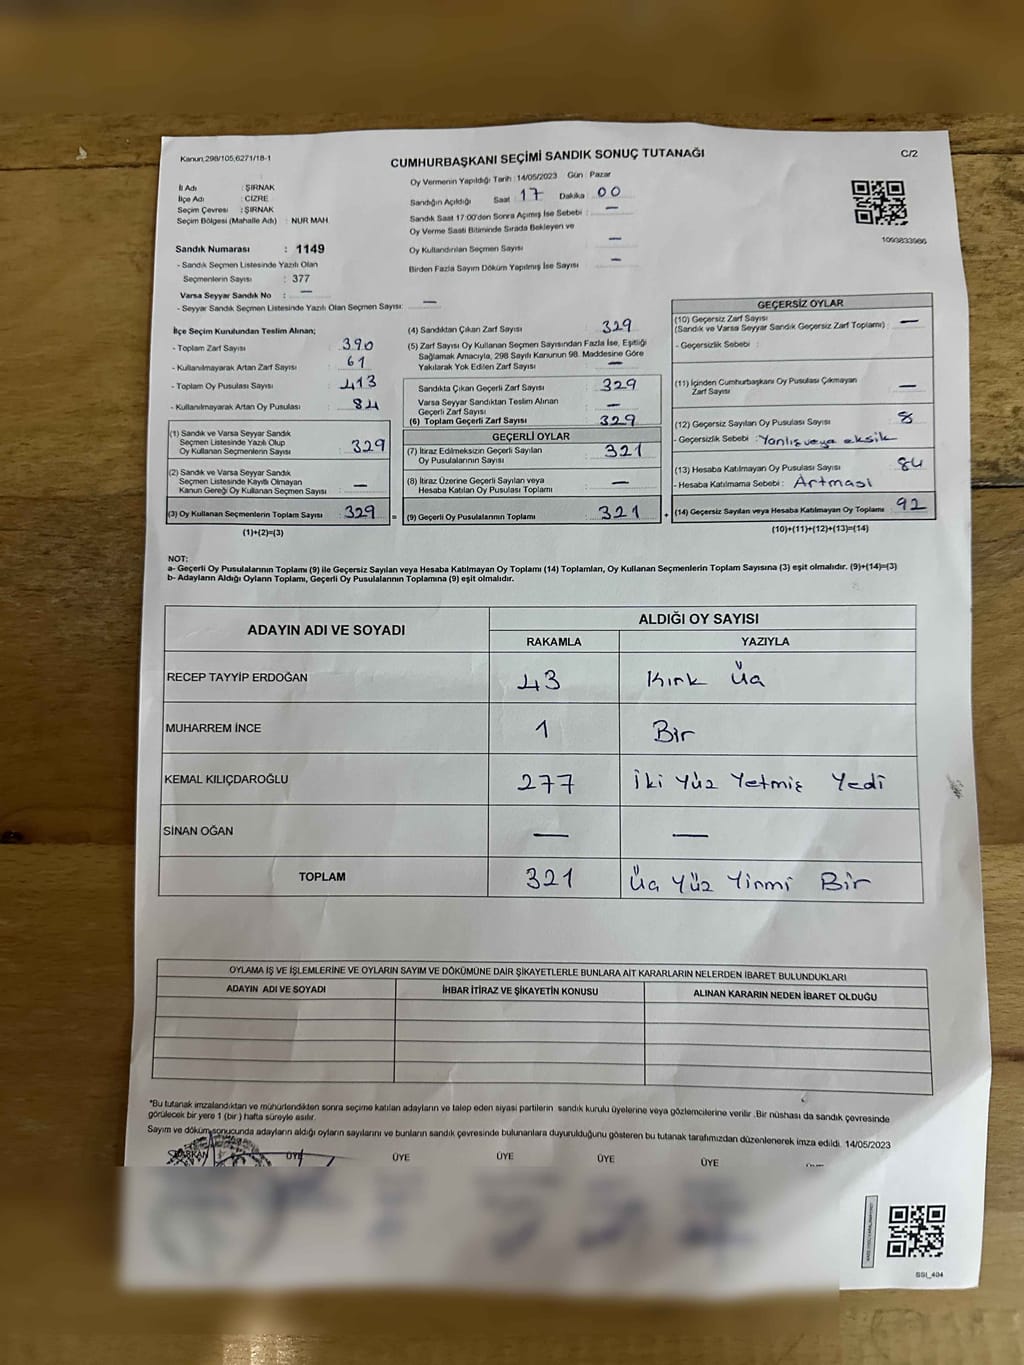 Kanun,298/105,6271/18-1
CUMHURBAŞKANI SEÇİMİ SANDIK SONUÇ TUTANAĞI
C/2
İl Adı : ŞIRNAK
İlçe Adı : CİZRE
Seçim Çevresi : ŞIRNAK
Seçim Bölgesi (Mahalle Adı) : NUR MAH.
Sandık Numarası : 1149
- Sandık Seçmen Listesinde Yazılı Olan
Seçmenlerin Sayısı : 377
Varsa Seyyar Sandık No : —
- Seyyar Sandık Seçmen Listesinde Yazılı Olan Seçmen Sayısı: —
Oy Vermenin Yapıldığı Tarih : 14/05/2023 Gün : Pazar
Sandığın Açıldığı Saat 17 Dakika 00
Sandık Saat 17:00'den Sonra Açımış İse Sebebi : —
Oy Verme Saati Bitiminde Sırada Bekleyen ve
Oy Kullandırılan Seçmen Sayısı —
Birden Fazla Sayım Döküm Yapılmış İse Sayısı —
1093833986
İlçe Seçim Kurulundan Teslim Alınan;
- Toplam Zarf Sayısı 390
- Kullanılmayarak Artan Zarf Sayısı 61
- Toplam Oy Pusulası Sayısı 413
- Kullanılmayarak Artan Oy Pusulası 84
(1) Sandık ve Varsa Seyyar Sandık
Seçmen Listesinde Yazılı Olup
Oy Kullanan Seçmenlerin Sayısı 329
(2) Sandık ve Varsa Seyyar Sandık
Seçmen Listesinde Kayıtlı Olmayan
Kanun Gereği Oy Kullanan Seçmen Sayısı —
(3) Oy Kullanan Seçmenlerin Toplam Sayısı 329
(1)+(2)=(3)
(4) Sandıktan Çıkan Zarf Sayısı 329
(5) Zarf Sayısı Oy Kullanan Seçmen Sayısından Fazla İse, Eşitliği
Sağlamak Amacıyla, 298 Sayılı Kanunun 98. Maddesine Göre
Yakılarak Yok Edilen Zarf Sayısı —
Sandıkta Çıkan Geçerli Zarf Sayısı 329
Varsa Seyyar Sandıktan Teslim Alınan
Geçerli Zarf Sayısı —
(6) Toplam Geçerli Zarf Sayısı 329
GEÇERLİ OYLAR
(7) İtiraz Edilmeksizin Geçerli Sayılan
Oy Pusulalarının Sayısı 321
(8) İtiraz Üzerine Geçerli Sayılan veya
Hesaba Katılan Oy Pusulası Toplamı —
= (9) Geçerli Oy Pusulalarının Toplamı 321 +
GEÇERSİZ OYLAR
(10) Geçersiz Zarf Sayısı
(Sandık ve Varsa Seyyar Sandık Geçersiz Zarf Toplamı) : —
- Geçersizlik Sebebi :
(11) İçinden Cumhurbaşkanı Oy Pusulası Çıkmayan
Zarf Sayısı —
(12) Geçersiz Sayılan Oy Pusulası Sayısı 8
- Geçersizlik Sebebi : Yanlış veya eksik
(13) Hesaba Katılmayan Oy Pusulası Sayısı 84
- Hesaba Katılmama Sebebi : Artması
(14) Geçersiz Sayılan veya Hesaba Katılmayan Oy Toplamı 92
(10)+(11)+(12)+(13)=(14)
NOT:
a- Geçerli Oy Pusulalarının Toplamı (9) ile Geçersiz Sayılan veya Hesaba Katılmayan Oy Toplamı (14) Toplamları, Oy Kullanan Seçmenlerin Toplam Sayısına (3) eşit olmalıdır. (9)+(14)=(3)
b- Adayların Aldığı Oyların Toplamı, Geçerli Oy Pusulalarının Toplamına (9) eşit olmalıdır.
ADAYIN ADI VE SOYADI
ALDIĞI OY SAYISI
RAKAMLA YAZIYLA
RECEP TAYYİP ERDOĞAN 43 Kırk Üç
MUHARREM İNCE 1 Bir
KEMAL KILIÇDAROĞLU 277 İki Yüz Yetmiş Yedi
SİNAN OĞAN — —
TOPLAM 321 Üç Yüz Yirmi Bir
OYLAMA İŞ VE İŞLEMLERİNE VE OYLARIN SAYIM VE DÖKÜMÜNE DAİR ŞİKAYETLERLE BUNLARA AİT KARARLARIN NELERDEN İBARET BULUNDUKLARI
ADAYIN ADI VE SOYADI İHBAR İTİRAZ VE ŞİKAYETİN KONUSU ALINAN KARARIN NEDEN İBARET OLDUĞU
*Bu tutanak imzalandıktan ve mühürlendikten sonra seçime katılan adayların ve talep eden siyasi partilerin sandık kurulu üyelerine veya gözlemcilerine verilir .Bir nüshası da sandık çevresinde
görülecek bir yere 1 (bir ) hafta süreyle asılır.
Sayım ve döküm sonucunda adayların aldığı oyların sayılarını ve bunların sandık çevresinde bulunanlara duyurulduğunu gösteren bu tutanak tarafımızdan düzenlenerek imza edildi. 14/05/2023
ÜYE ÜYE ÜYE ÜYE ÜYE
SSI_404